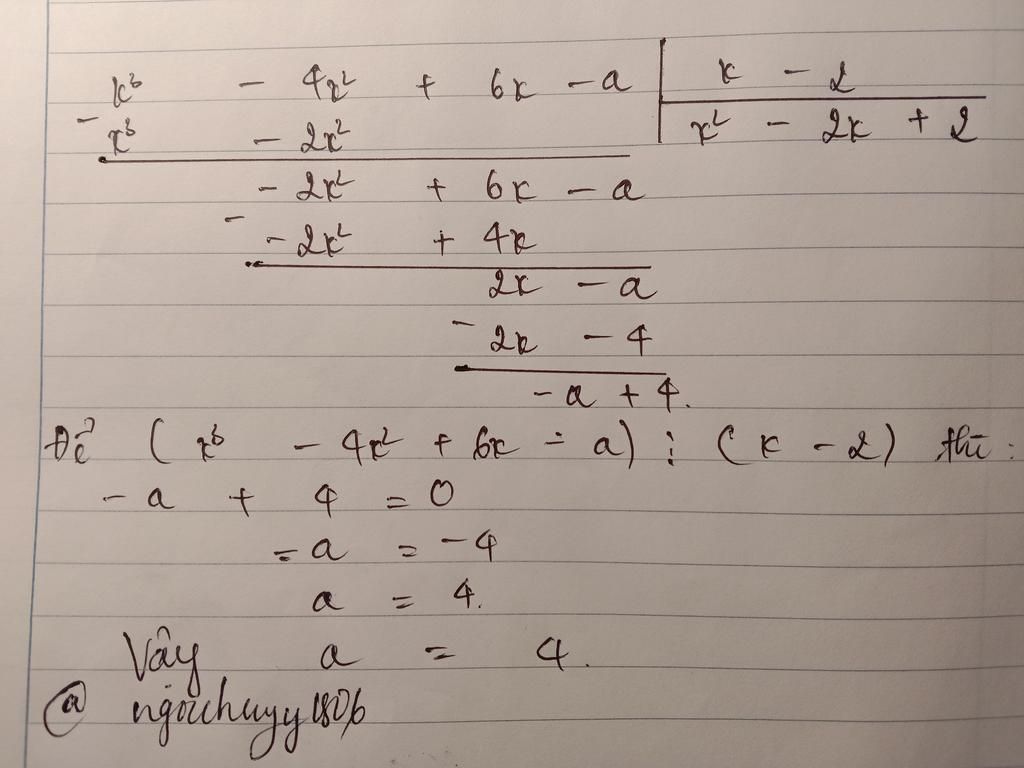 x³ - 4x² + 6x - a | x - 2
- x³ - 2x² | x² - 2x + 2
- 2x² + 6x - a
- - 2x² + 4x
2x - a
- 2x - 4
- a + 4.
Để (x³ - 4x² + 6x - a) ⋮ (x - 2) thì :
- a + 4 = 0
- a = -4
a = 4.
Vậy a = 4.